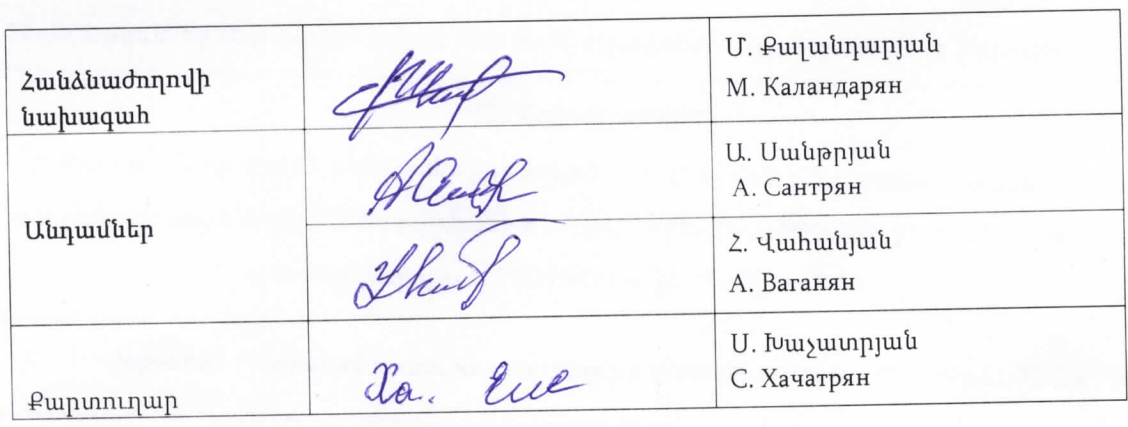 Հանձնաժողովի
նախագահ
Մ. Քալանդարյան
М. Каландарян
Անդամներ
Ա. Սանթրյան
А. Сантрян
Հ. Վահանյան
А. Ваганян
Քարտուղար
Ս. Խաչատրյան
С. Хачатрян